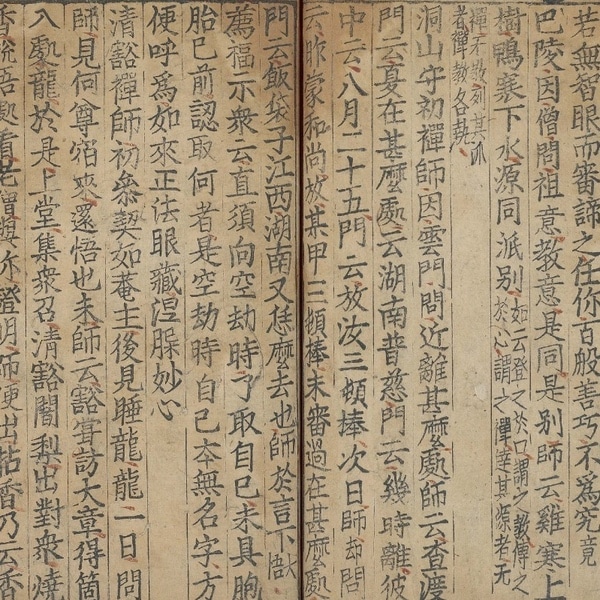 若無智眼而審諦之任你百般善巧不爲究竟
巴陵因僧問祖意教意是同是別師云雞寒上
樹鴨寒下水源同派別如云登之於口謂之教傳之
於心謂之禪達其源者无
禪不教列其派
者禪教各執
洞山守初禪師因雲門問近離甚麽處師云查渡
門云夏在甚麽處云湖南普慈門云幾時離彼
中云八月二十五門云放汝三頓棒次日師却問
云昨蒙和尚放某甲三頓棒未審過在甚麽處
門云飯袋子江西湖南又恁麽去也師於言下大
悟
薦福示衆云直須向空劫時承取自己未具胞
胎已前認取何者是空劫時自己本無名字方
便呼爲如來正法眼藏涅槃妙心
清豁禪師初叅契如菴主後見睡龍龍一日問
師見何尊宿來還悟也未師云豁甞訪大章得箇
入處龍於是上堂集衆召清豁闍梨出對衆燒
香說悟疑看老僧與亦證明師便出拈香乃云香